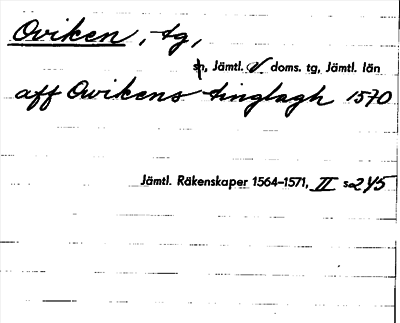 Oviken, tg,
sn, Jämtl. V doms. tg, Jämtl. län
aff Owikens tinglagh 1570
Jämtl. Räkenskaper 1564–1571, II s 245